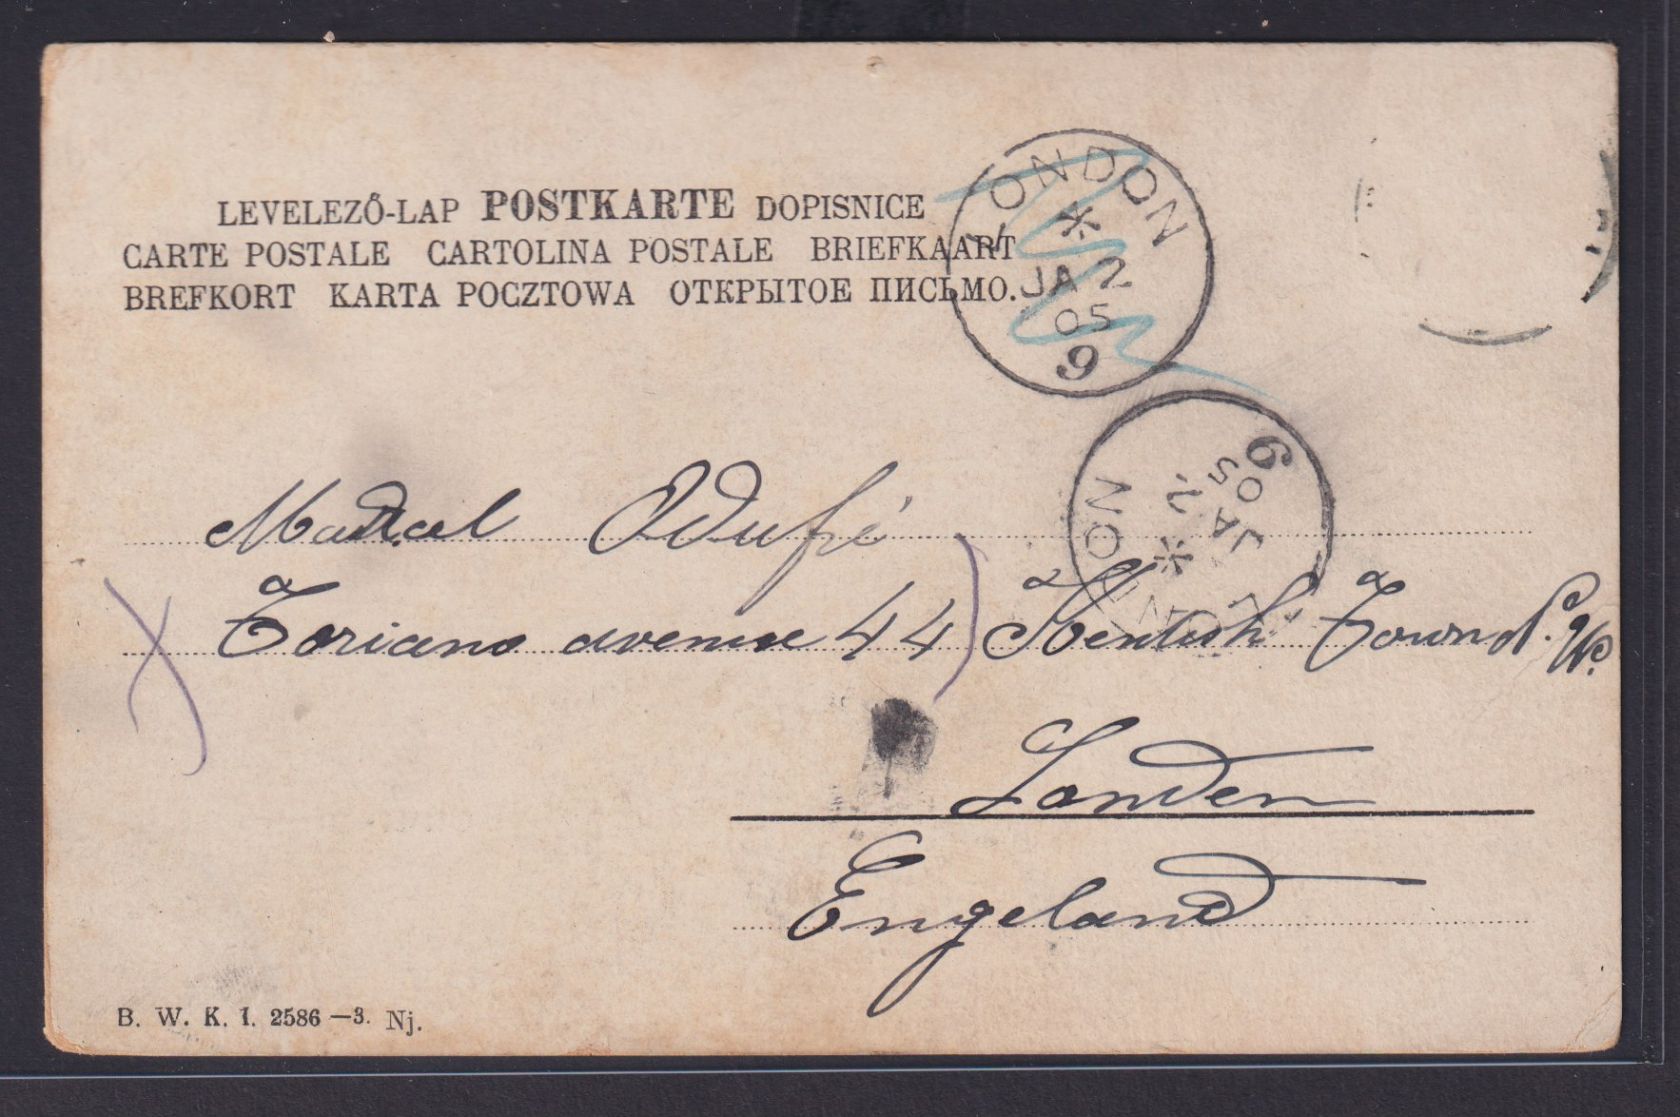 LEVELEZŐ-LAP POSTKARTE DOPISNICE
CARTE POSTALE CARTOLINA POSTALE BRIEFKAART
BREFKORT KARTA POCZTOWA ОТКРЫТОЕ ПИСЬМО.
LONDON
JA 2
05
9
LONDON
JA 2
05
9
Marcel
Toriano avenue 44 Kentish Town N.W.
Londen
Engeland
B. W. K. I. 2586 —3. Nj.